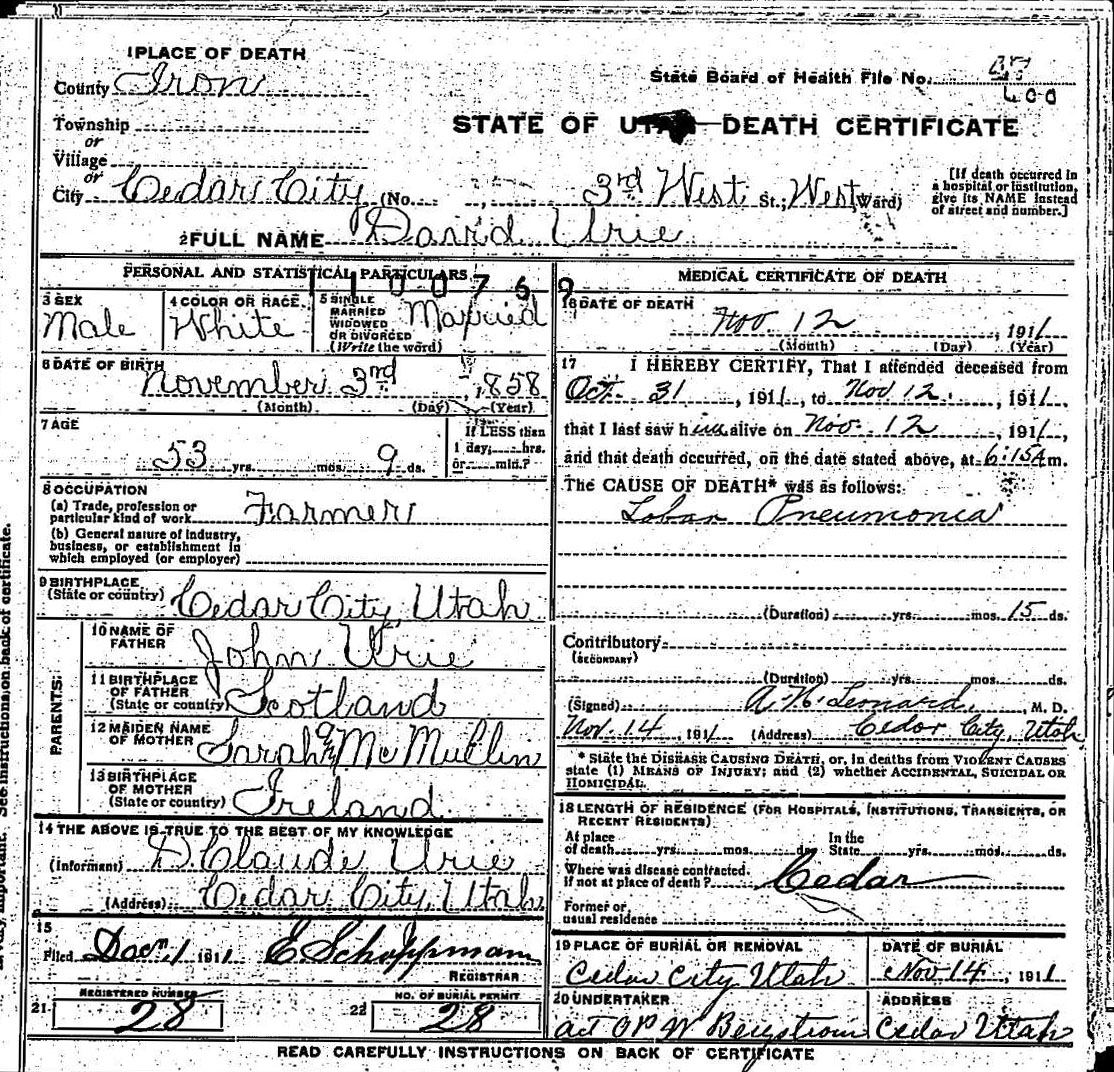 1 PLACE OF DEATH
County Iron
State Board of Health File No.
400
Township
or
Village
or
STATE OF UTAH DEATH CERTIFICATE
City Cedar City (No. , 3rd West St.; West Ward)
[If death occurred in
a hospital or institution,
give its NAME instead
of street and number.]
2 FULL NAME David Urie
PERSONAL AND STATISTICAL PARTICULARS
1100769
3 SEX
Male
4 COLOR OR RACE
White
5 SINGLE
MARRIED
WIDOWED
OR DIVORCED
(Write the word)
Married
6 DATE OF BIRTH
November 3rd , 1858
(Month) (Day) (Year)
7 AGE
53 yrs. mos. 9 ds.
If LESS than
1 day, hrs.
or min.?
8 OCCUPATION
(a) Trade, profession or
particular kind of work Farmer
(b) General nature of industry,
business, or establishment in
which employed (or employer)
9 BIRTHPLACE
(State or country) Cedar City, Utah
PARENTS
10 NAME OF
FATHER John Urie
11 BIRTHPLACE
OF FATHER
(State or country) Scotland
12 MAIDEN NAME
OF MOTHER Sarah McMullin
13 BIRTHPLACE
OF MOTHER
(State or country) Ireland
14 THE ABOVE IS TRUE TO THE BEST OF MY KNOWLEDGE
(Informant) D. Claude Urie
(Address) Cedar City, Utah
15
Filed Dec 1 1911 E Schoppmann
REGISTRAR
21 REGISTERED NUMBER
28
22 NO. OF BURIAL PERMIT
28
MEDICAL CERTIFICATE OF DEATH
16 DATE OF DEATH
Nov 12 , 1911
(Month) (Day) (Year)
17 I HEREBY CERTIFY, That I attended deceased from
Oct. 31 , 1911, to Nov 12. , 1911,
that I last saw him alive on Nov. 12 , 1911,
and that death occurred, on the date stated above, at 6:15 A m.
The CAUSE OF DEATH* was as follows:
Lobar Pneumonia
(Duration) yrs. mos. 15 ds.
Contributory
(SECONDARY)
(Duration) yrs. mos. ds.
(Signed) A. N. Leonard , M. D.
Nov. 14 , 1911 (Address) Cedar City, Utah
* State the DISEASE CAUSING DEATH, or, in deaths from VIOLENT CAUSES
state (1) MEANS OF INJURY; and (2) whether ACCIDENTAL, SUICIDAL OR
HOMICIDAL.
18 LENGTH OF RESIDENCE (FOR HOSPITALS, INSTITUTIONS, TRANSIENTS, OR
RECENT RESIDENTS)
At place
of death yrs. mos. ds.
In the
State yrs. mos. ds.
Where was disease contracted.
If not at place of death? Cedar
Former or
usual residence
19 PLACE OF BURIAL OR REMOVAL
Cedar City Utah
DATE OF BURIAL
Nov 14 , 1911
20 UNDERTAKER
Bergstrom
ADDRESS
Cedar Utah
READ CAREFULLY INSTRUCTIONS ON BACK OF CERTIFICATE
important. See instructions on back of certificate.